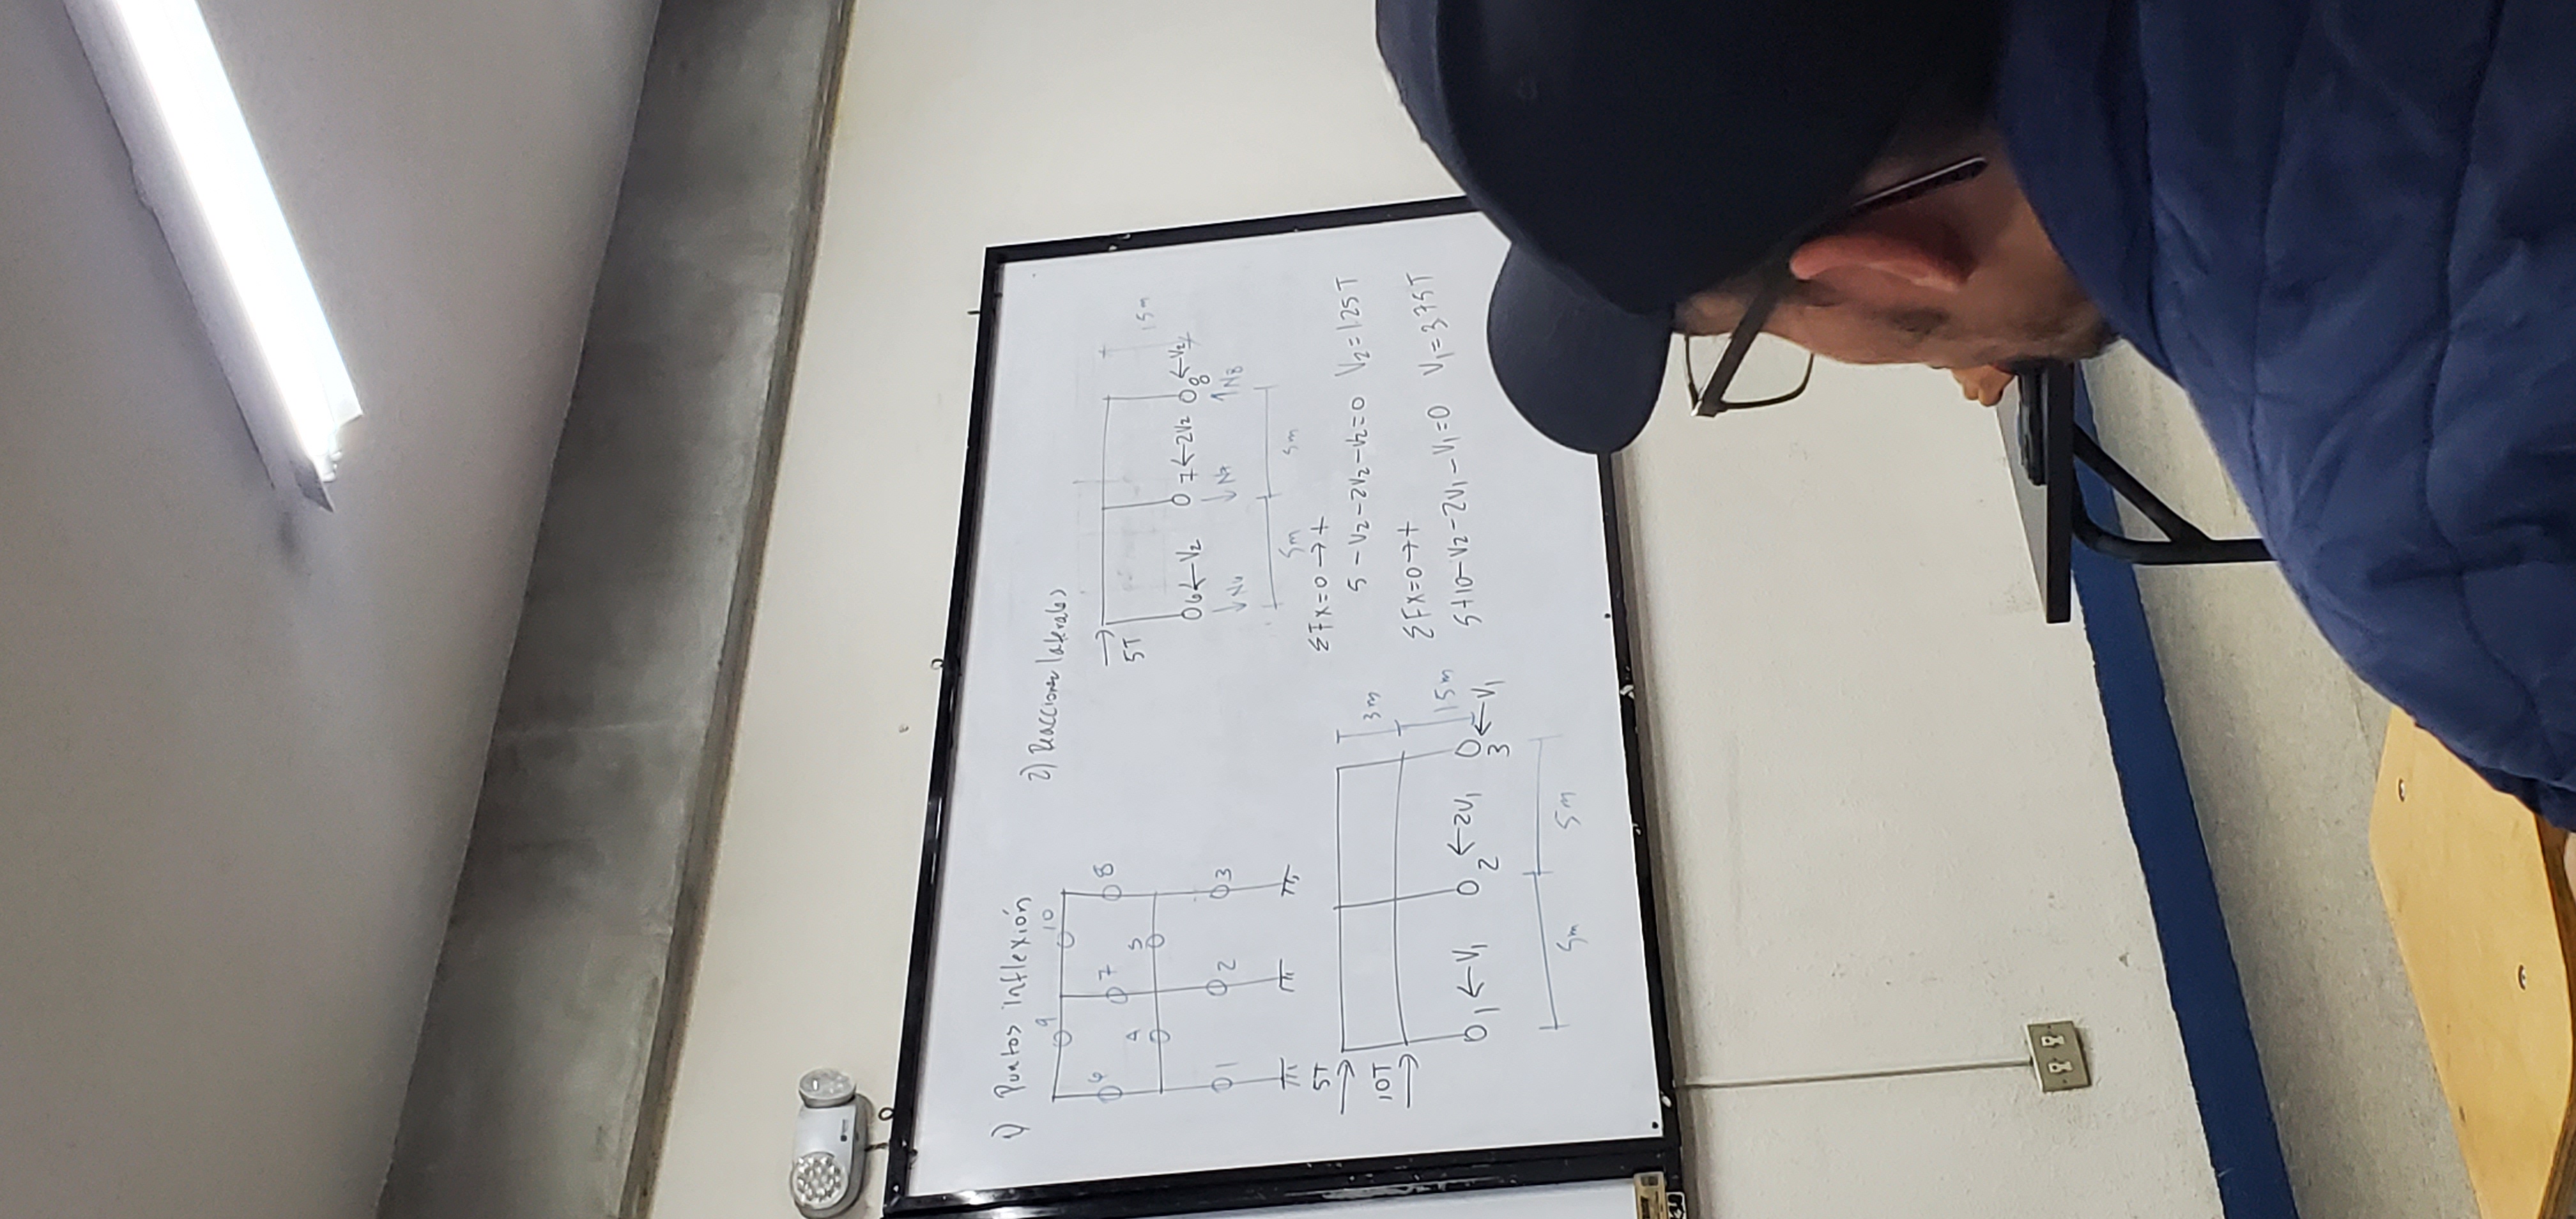 1) Puntos inflexión
9 10
6 7 8
4 5
1 2 3
5T
10T
3m
1.5m
1 ←V1
2 ←2V1
3 ←V1
5m 5m
2) Reacciones laterales
5T
1.5m
6←V2 7←2V2 8←V2
↓N6 ↓N7 ↑N8
5m 5m
ΣFx=0→+
5-V2-2V2-V2=0 V2=1.25T
ΣFx=0→+
5+10-V2-2V1-V1=0 V1=3.75T